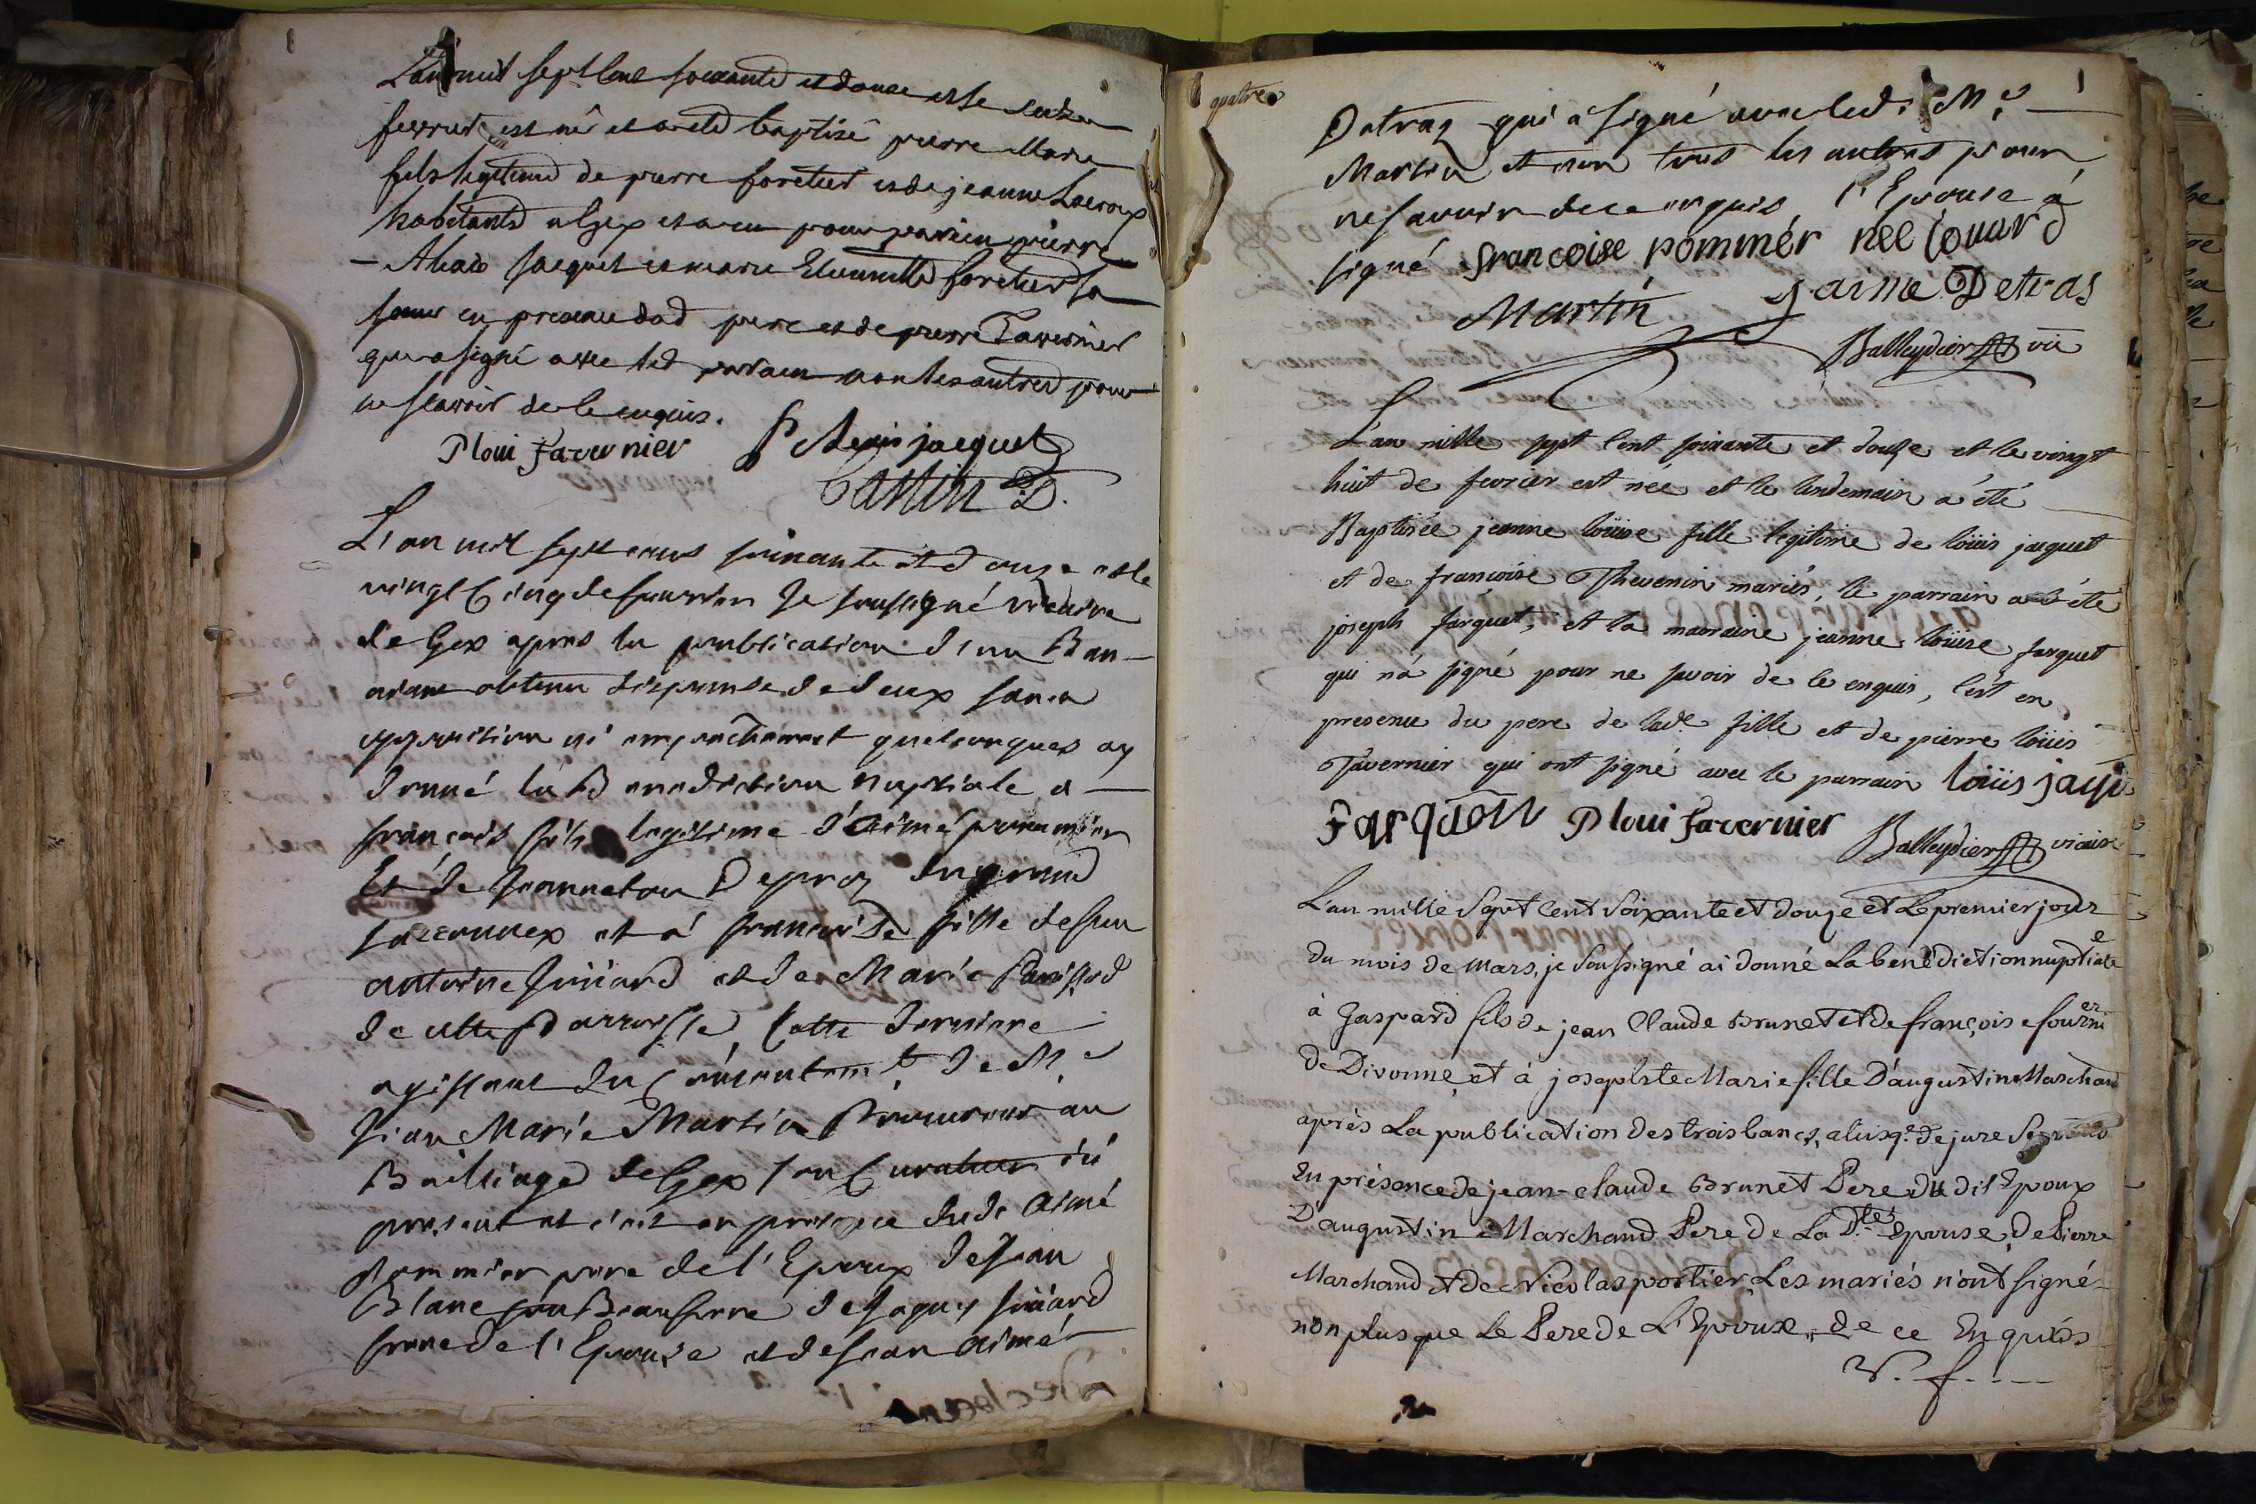 L'an mil sept Cent soixante et douze et le seize
fevrier est né et a eté baptisé pierre Marie
fils legitime de pierre foretier et de jeanne Lacroix
habitants a Gex et a eu pour parrein pierre
Alexis jacquet et marie foretier sa
soeur en presence dud pere et de pierre Tavernier
qui a signé avec led parrain non les autres pour
ne scavoir de le enquis.
P loui Favernier P Alexis jacquet
L'an mil sept cens soixante et douze et le
vingt Cinq de fevrier Je soussigné vicaire
de Gex apres la publication d'un Ban
aiant obtenu dispense de deux sans
opposition ni empechement quelconques ay
donné la Benediction nuptiale a
françois fils legitime d'Aimé pommier
Et de Jeanneton Depraz du grand
Saconnex et à francoise fille de feu
antoine et de Marie
de cette Parroisse, Cette derniere
agissant du Consentem.t de M.e
Jean Marie Martin Procureur au
Bailliage de Gex son Curateur ici
present et c'est en presence dud. Aimé
pommier pere de l'Epoux de Jean
Blanc son Beaufrere de Jaques
frere de l'Epouse et de Jean Aimé
quatre
Detraz qui a signé avec led. M.e
Martin et non tous les autres pour
ne savoir de ce enquis l'Epouse à
signé francoise pommér nee
Martin j aimé Detras
Balleydier vic
L'an mille sept Cent soixante et douze et le vingt
huit de fevrier est née et le lendemain a été
Baptisée jeanne loüise fille legitime de loüis jacquet
et de francoise Thevenin mariés, le parrain a été
joseph farquet, et la marraine jeanne loüise farquet
qui n'a signé pour ne savoir de ce enquis, c'est en
presence du pere de lad.e fille et de pierre loüis
Tavernier qui ont signé avec le parrain loüis jaq
P loui Favernier Balleydier vicaire
L'an mille Sept Cent Soixante et douze et Le premier jour
du mois de Mars, je Soussigné ai donné La benédiction nuptiale
à Gaspard fils de jean Claude Brunet et de françoise fournier
de Divonne, et à josephte Marie fille D'augustin Marchand
après La publication des trois bancs,
En présence de jean-claude Brunet Pere du dit Epoux
D'augustin Marchand Pere de La D.te Epouse, de Pierre
Marchand et de Nicolas portier Les mariés n'ont signé
non plus que Le Pere de L'Epoux, de ce Enquis